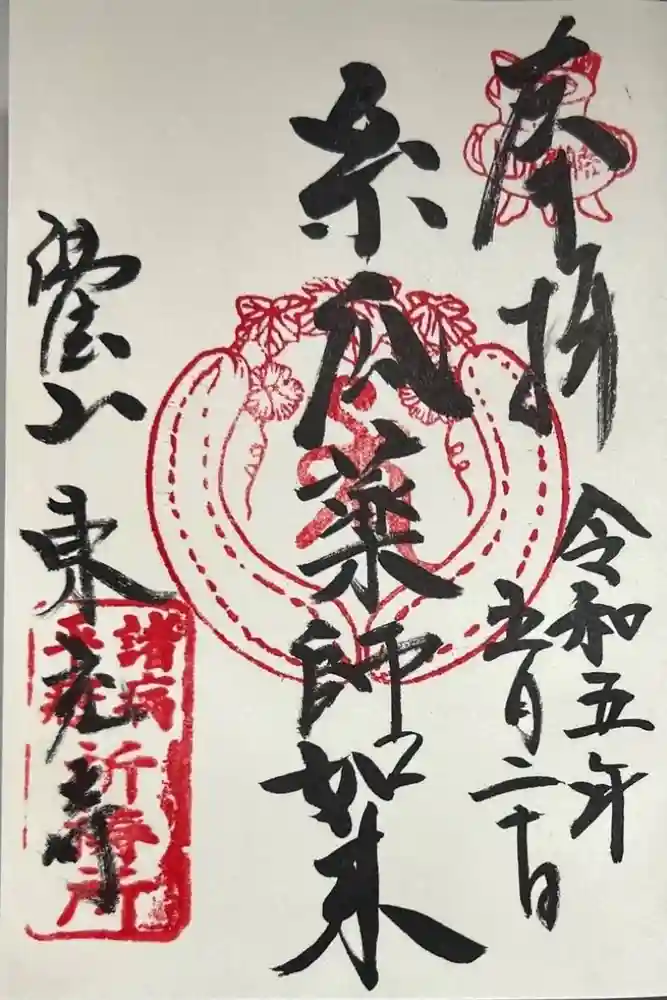 奉拝
令和五年
五月二十日
糸瓜薬師如来
山東光寺
諸病
平癒
祈祷所